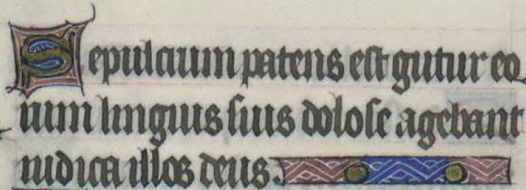 Sepulcrum patens est gutur eo
rum linguis suis dolose agebant
iudica illos deus.